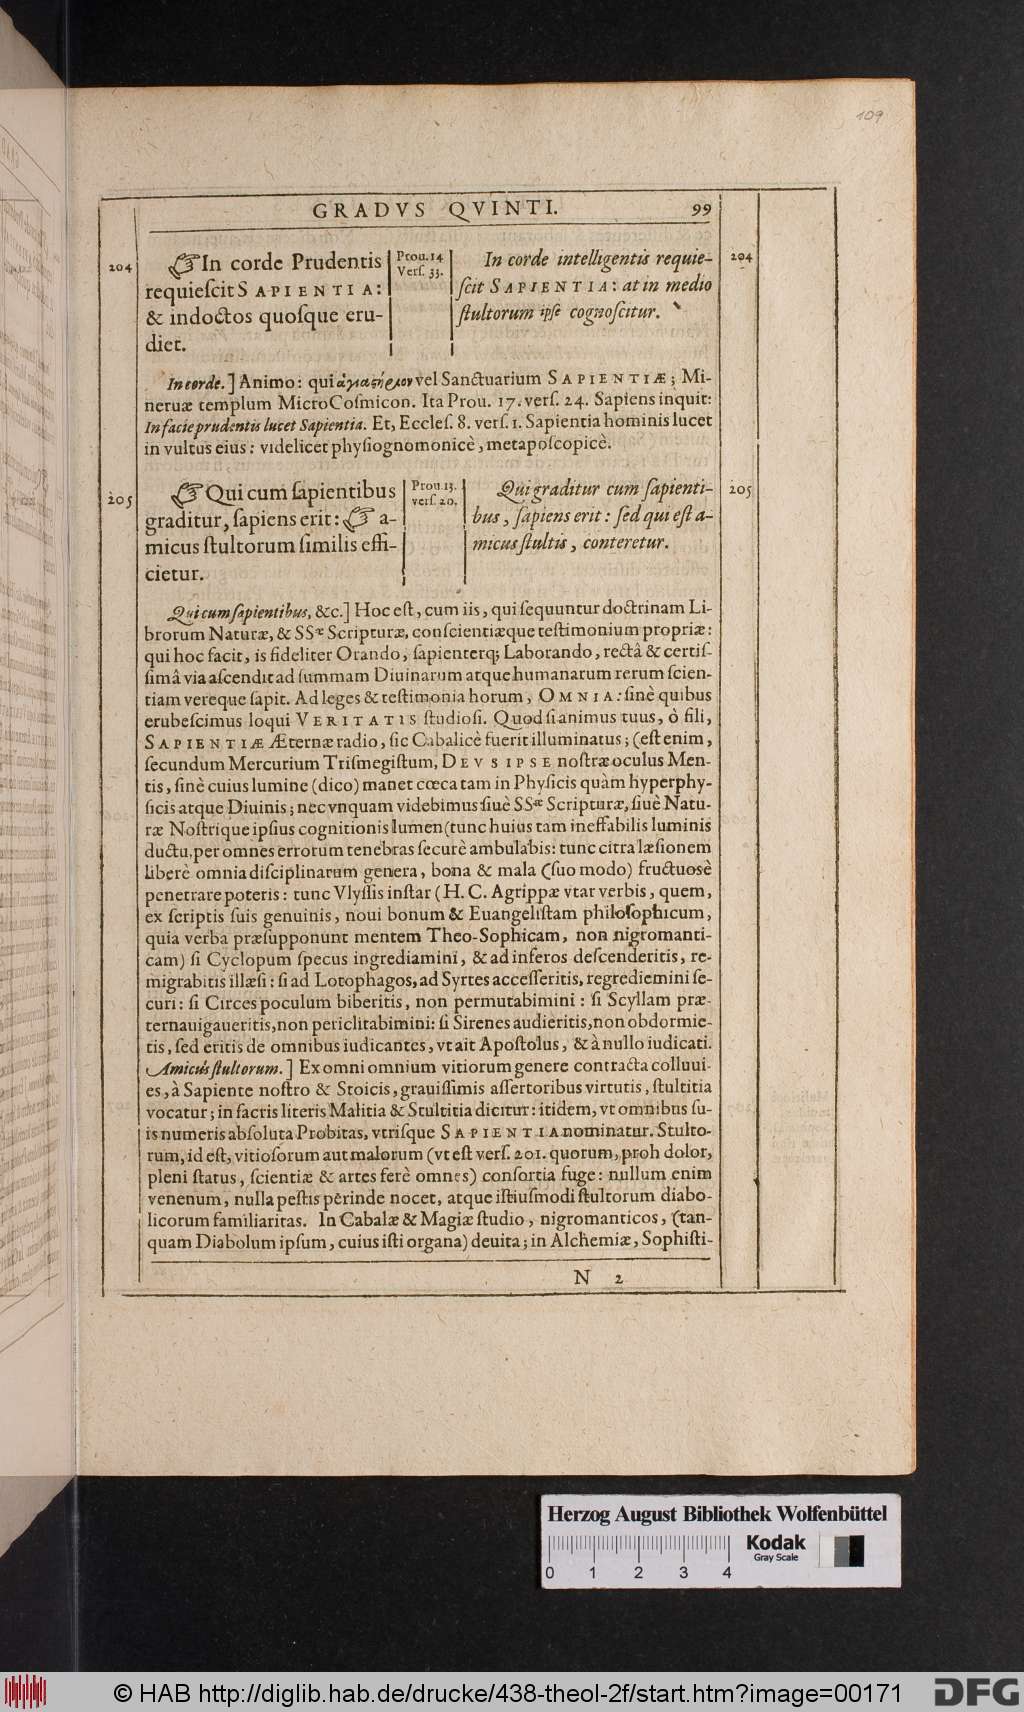 109
GRADVS QVINTI. 99
204
☞In corde Prudentis
requieſcit SAPIENTIA:
& indoctos quoſque eru-
diet.
Prou. 14
Verſ. 33.
In corde intelligentis requie-
ſcit SAPIENTIA: at in medio
ſtultorum ipſe cognoſcitur.
204
In corde.] Animo: qui vel Sanctuarium SAPIENTIÆ; Mi-
neruæ templum MicroCoſmicon. Ita Prou. 17. verſ. 24. Sapiens inquit:
In facie prudentis lucet Sapientia. Et, Eccleſ. 8. verſ. 1. Sapientia hominis lucet
in vultus eius: videlicet phyſiognomonicè, metapoſcopicè.
205
☞Qui cum ſapientibus
graditur, ſapiens erit: ☞ a-
micus ſtultorum ſimilis effi-
cietur.
Prou. 13.
verſ. 20.
Qui graditur cum ſapienti-
bus, ſapiens erit: ſed qui eſt a-
micus ſtultis, conteretur.
205
Qui cum ſapientibus, &c.] Hoc eſt, cum iis, qui ſequuntur doctrinam Li-
brorum Naturæ, & SSæ Scripturæ, conſcientiæque teſtimonium propriæ:
qui hoc facit, is fideliter Orando, ſapienterq; Laborando, rectâ & certiſ-
ſimâ via aſcendit ad ſummam Diuinarum atque humanarum rerum ſcien-
tiam vereque ſapit. Ad leges & teſtimonia horum, OMNIA: ſinè quibus
erubeſcimus loqui VERITATIS ſtudioſi. Quod ſi animus tuus, ò fili,
SAPIENTIÆ Æternæ radio, ſic Cabalicè fuerit illuminatus; (eſt enim,
ſecundum Mercurium Triſmegiſtum, DEVS IPSE noſtræ oculus Men-
tis, ſinè cuius lumine (dico) manet cœca tam in Phyſicis quàm hyperphy-
ſicis atque Diuinis; nec vnquam videbimus ſiuè SSæ Scripturæ, ſiuè Natu-
ræ Noſtrique ipſius cognitionis lumen (tunc huius tam ineffabilis luminis
ductu, per omnes errorum tenebras ſecurè ambulabis: tunc citra læſionem
liberè omnia diſciplinarum genera, bona & mala (ſuo modo) fructuosè
penetrare poteris: tunc Vlyſſis inſtar (H. C. Agrippæ vtar verbis, quem,
ex ſcriptis ſuis genuinis, noui bonum & Euangeliſtam philoſophicum,
quia verba præſupponunt mentem Theo-Sophicam, non nigromanti-
cam) ſi Cyclopum ſpecus ingrediamini, & ad inferos deſcenderitis, re-
migrabitis illæſi: ſi ad Lotophagos, ad Syrtes acceſſeritis, regrediemini ſe-
curi: ſi Circes poculum biberitis, non permutabimini: ſi Scyllam præ-
ternauigaueritis, non periclitabimini: ſi Sirenes audieritis, non obdormie-
tis, ſed eritis de omnibus iudicantes, vt ait Apoſtolus, & à nullo iudicati.
Amicus ſtultorum.] Ex omni omnium vitiorum genere contracta colluui-
es, à Sapiente noſtro & Stoicis, grauiſſimis aſſertoribus virtutis, ſtultitia
vocatur; in ſacris literis Malitia & Stultitia dicitur: itidem, vt omnibus ſu-
is numeris abſoluta Probitas, vtriſque SAPIENTIA nominatur. Stulto-
rum, id eſt, vitioſorum aut malorum (vt eſt verſ. 201. quorum, proh dolor,
pleni ſtatus, ſcientiæ & artes ferè omnes) conſortia fuge: nullum enim
venenum, nulla peſtis perinde nocet, atque iſtiuſmodi ſtultorum diabo-
licorum familiaritas. In Cabalæ & Magiæ ſtudio, nigromanticos, (tan-
quam Diabolum ipſum, cuius iſti organa) deuita; in Alchemiæ, Sophiſti-
N 2
Herzog August Bibliothek Wolfenbüttel
Kodak
Gray Scale
0 1 2 3 4
© HAB http://diglib.hab.de/drucke/438-theol-2f/start.htm?image=00171
DFG